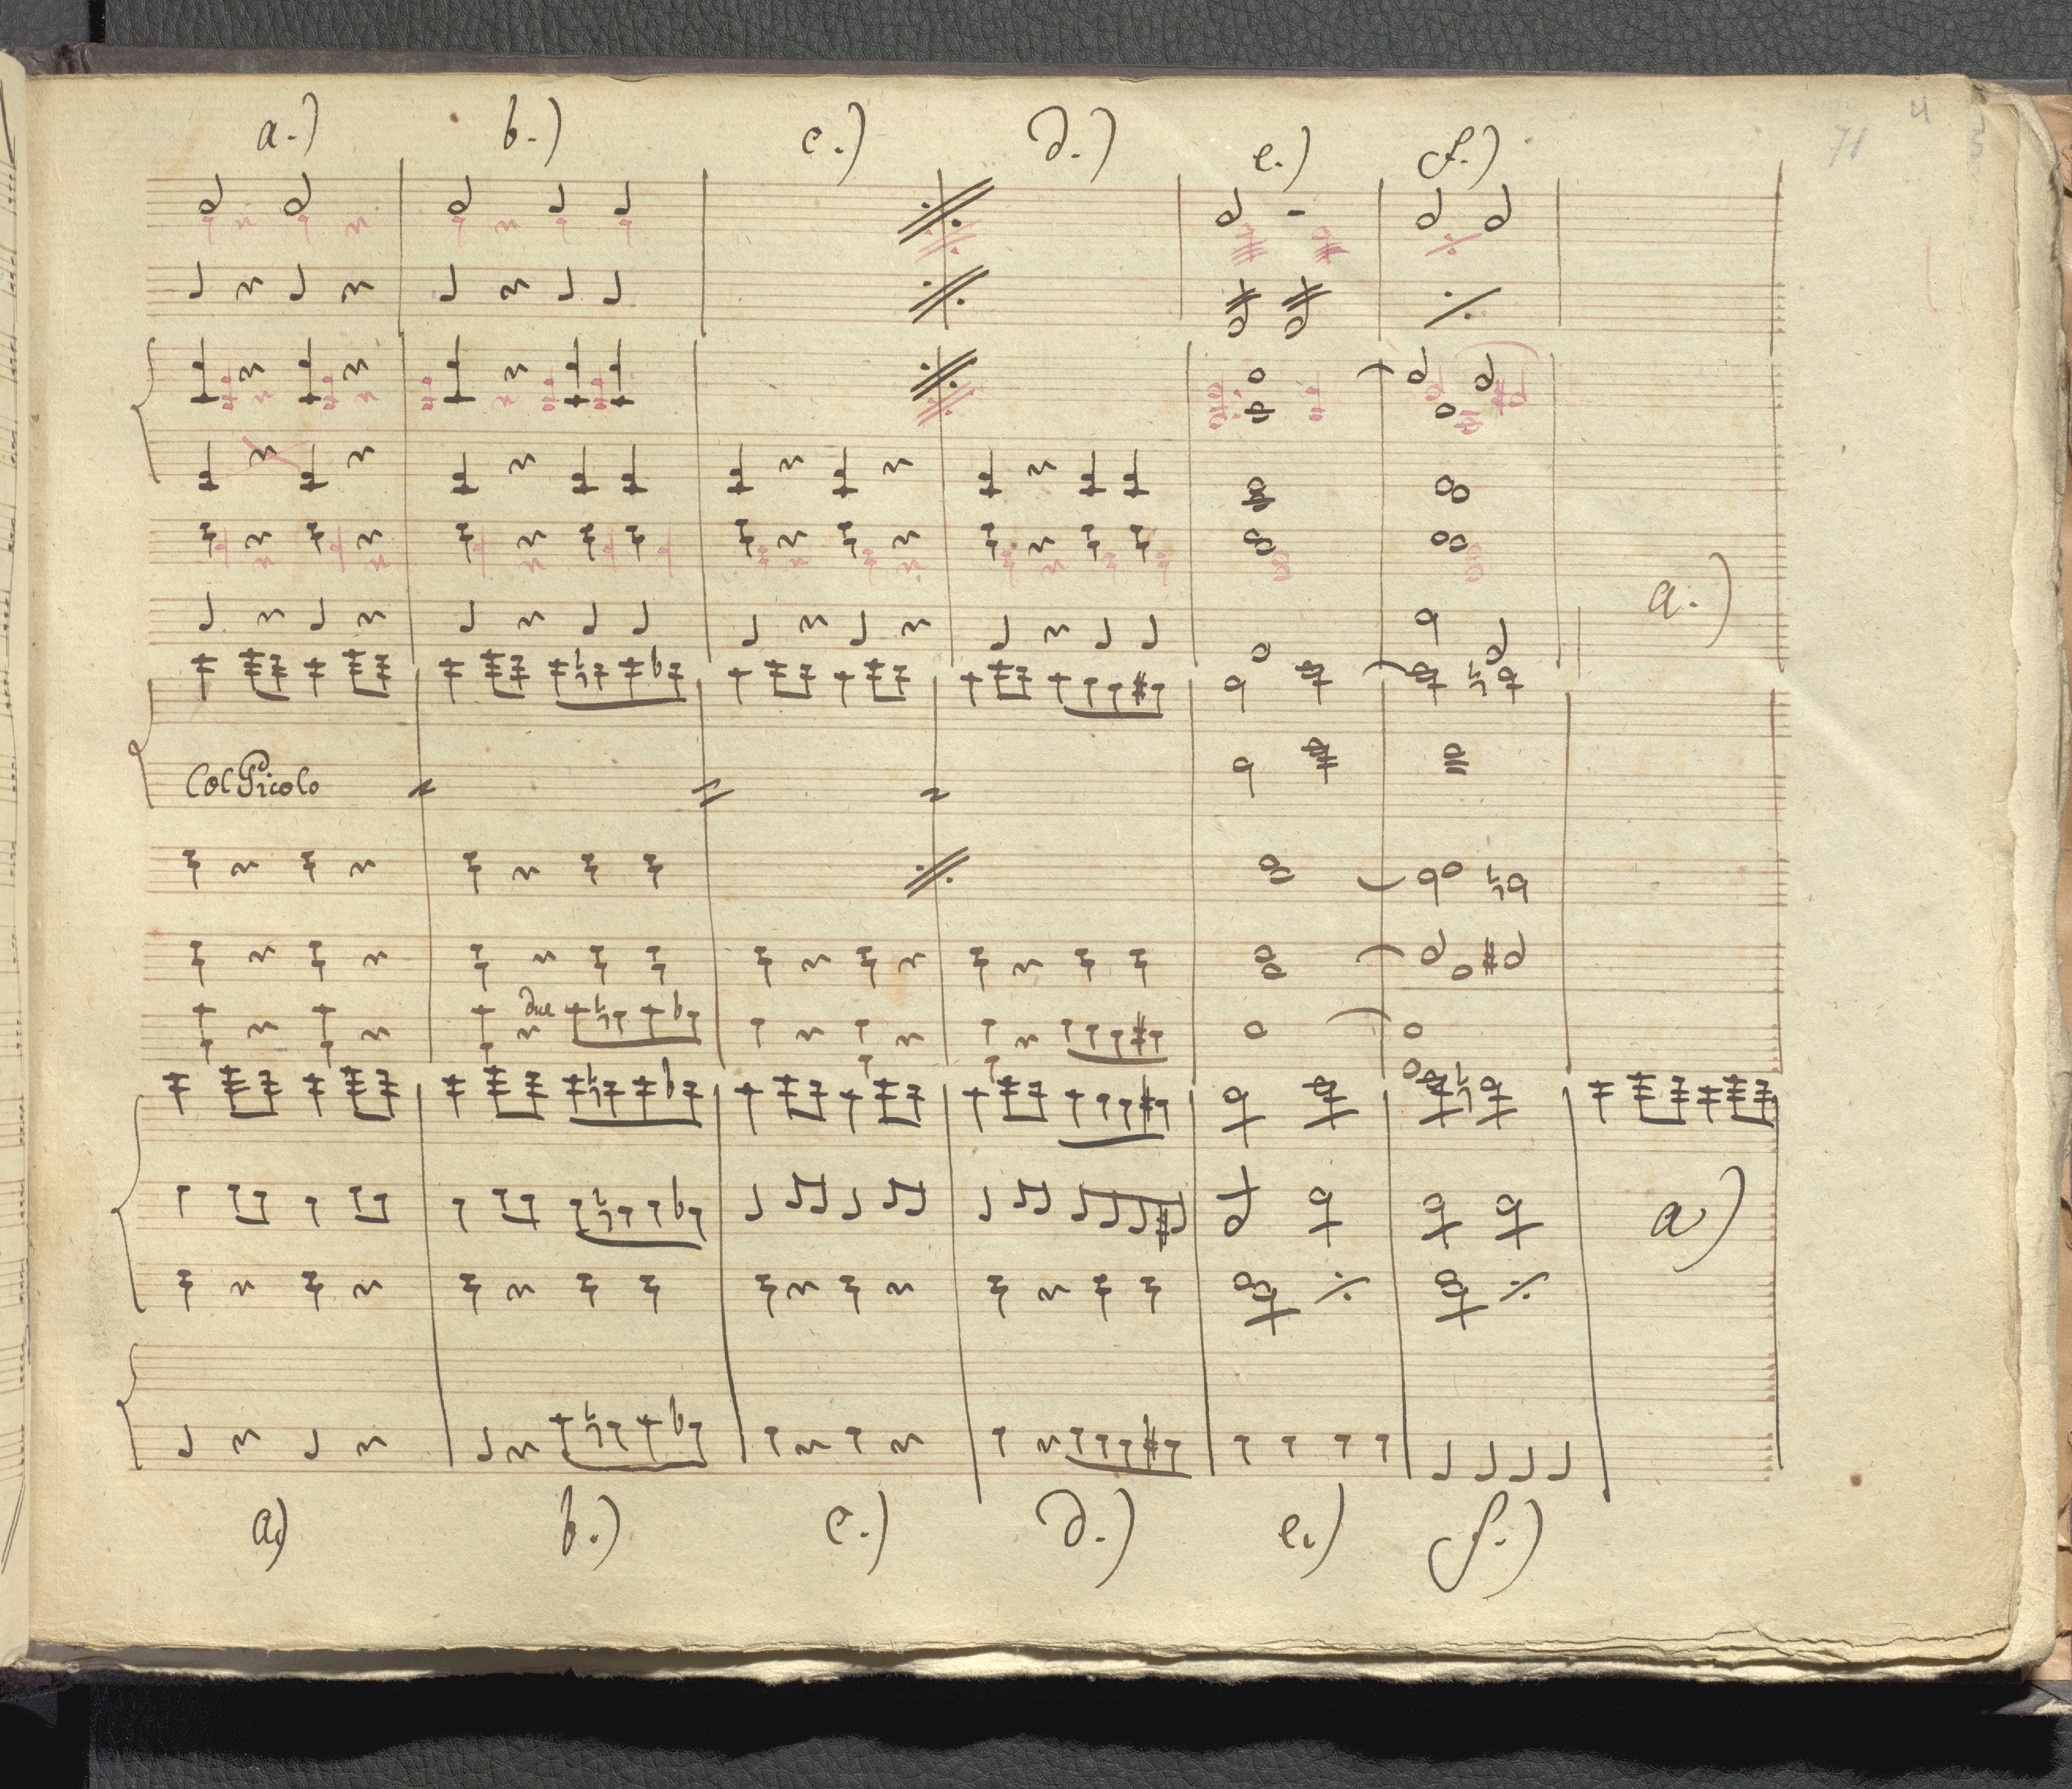 a.) b.) c.) d.) e.) f.)
71 4 3
a.)
Col Picolo
due
a)
a) b.) c.) d.) e.) f.)